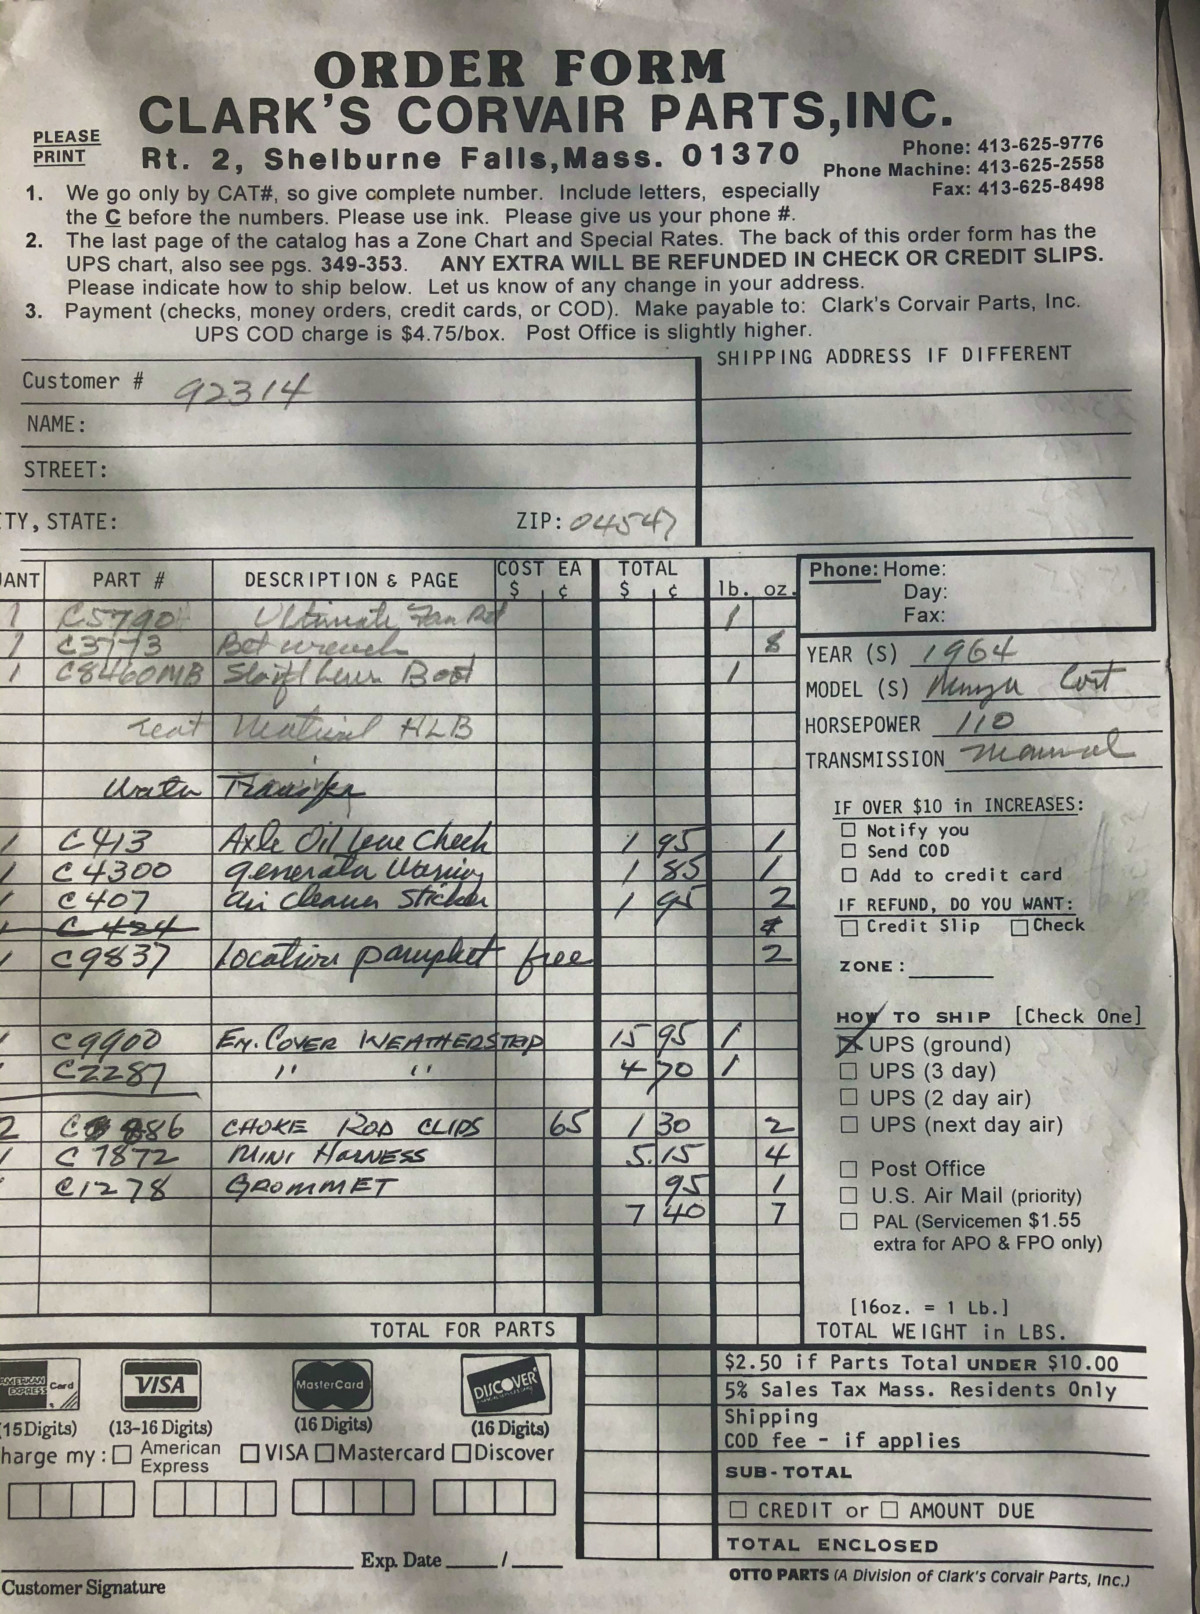 ORDER FORM
CLARK'S CORVAIR PARTS,INC.
PLEASE PRINT
Rt. 2, Shelburne Falls,Mass. 01370
Phone: 413-625-9776
Phone Machine: 413-625-2558
Fax: 413-625-8498
1. We go only by CAT#, so give complete number. Include letters, especially
the C before the numbers. Please use ink. Please give us your phone #.
2. The last page of the catalog has a Zone Chart and Special Rates. The back of this order form has the
UPS chart, also see pgs. 349-353. ANY EXTRA WILL BE REFUNDED IN CHECK OR CREDIT SLIPS.
Please indicate how to ship below. Let us know of any change in your address.
3. Payment (checks, money orders, credit cards, or COD). Make payable to: Clark's Corvair Parts, Inc.
UPS COD charge is $4.75/box. Post Office is slightly higher.
SHIPPING ADDRESS IF DIFFERENT
Customer # 92314
NAME:
STREET:
TY, STATE: ZIP: 04547
ANT PART # DESCRIPTION & PAGE COST EA $ ¢ TOTAL $ ¢ lb. oz.
1 C5790 Ultimate Fan Belt 1
1 C3773 Belt wrench 8
1 C8460MB Boot 1
Material HLB
Water Transfer
1 C413 Axle Oil Leve Check 1 95 1
1 C4300 generator Warning 1 85 1
1 C407 air cleaner Sticker 1 95 2
1 C424
1 C9837 Location pamplet free 2
1 C9900 EN. COVER WEATHERSTRIP 15 95 1
C2287 " " 4 70 1
2 886 CHOKE ROD CLIPS 65 1 30 2
1 C7872 MINI HARNESS 5.15 4
C1278 GROMMET 95 1
7 40 7
TOTAL FOR PARTS
Phone: Home:
Day:
Fax:
YEAR (S) 1964
MODEL (S) Monza
HORSEPOWER 110
TRANSMISSION Manual
IF OVER $10 in INCREASES:
Notify you
Send COD
Add to credit card
IF REFUND, DO YOU WANT:
Credit Slip Check
ZONE:
HOW TO SHIP [Check One]
UPS (ground)
UPS (3 day)
UPS (2 day air)
UPS (next day air)
Post Office
U.S. Air Mail (priority)
PAL (Servicemen $1.55
extra for APO & FPO only)
[16oz. = 1 Lb.]
TOTAL WEIGHT in LBS.
$2.50 if Parts Total UNDER $10.00
5% Sales Tax Mass. Residents Only
Shipping
COD fee - if applies
SUB-TOTAL
CREDIT or AMOUNT DUE
TOTAL ENCLOSED
AMERICAN EXPRESS Card VISA MasterCard DISCOVER
(15 Digits) (13-16 Digits) (16 Digits) (16 Digits)
harge my: American Express VISA Mastercard Discover
Exp. Date /
Customer Signature
OTTO PARTS (A Division of Clark's Corvair Parts, Inc.)